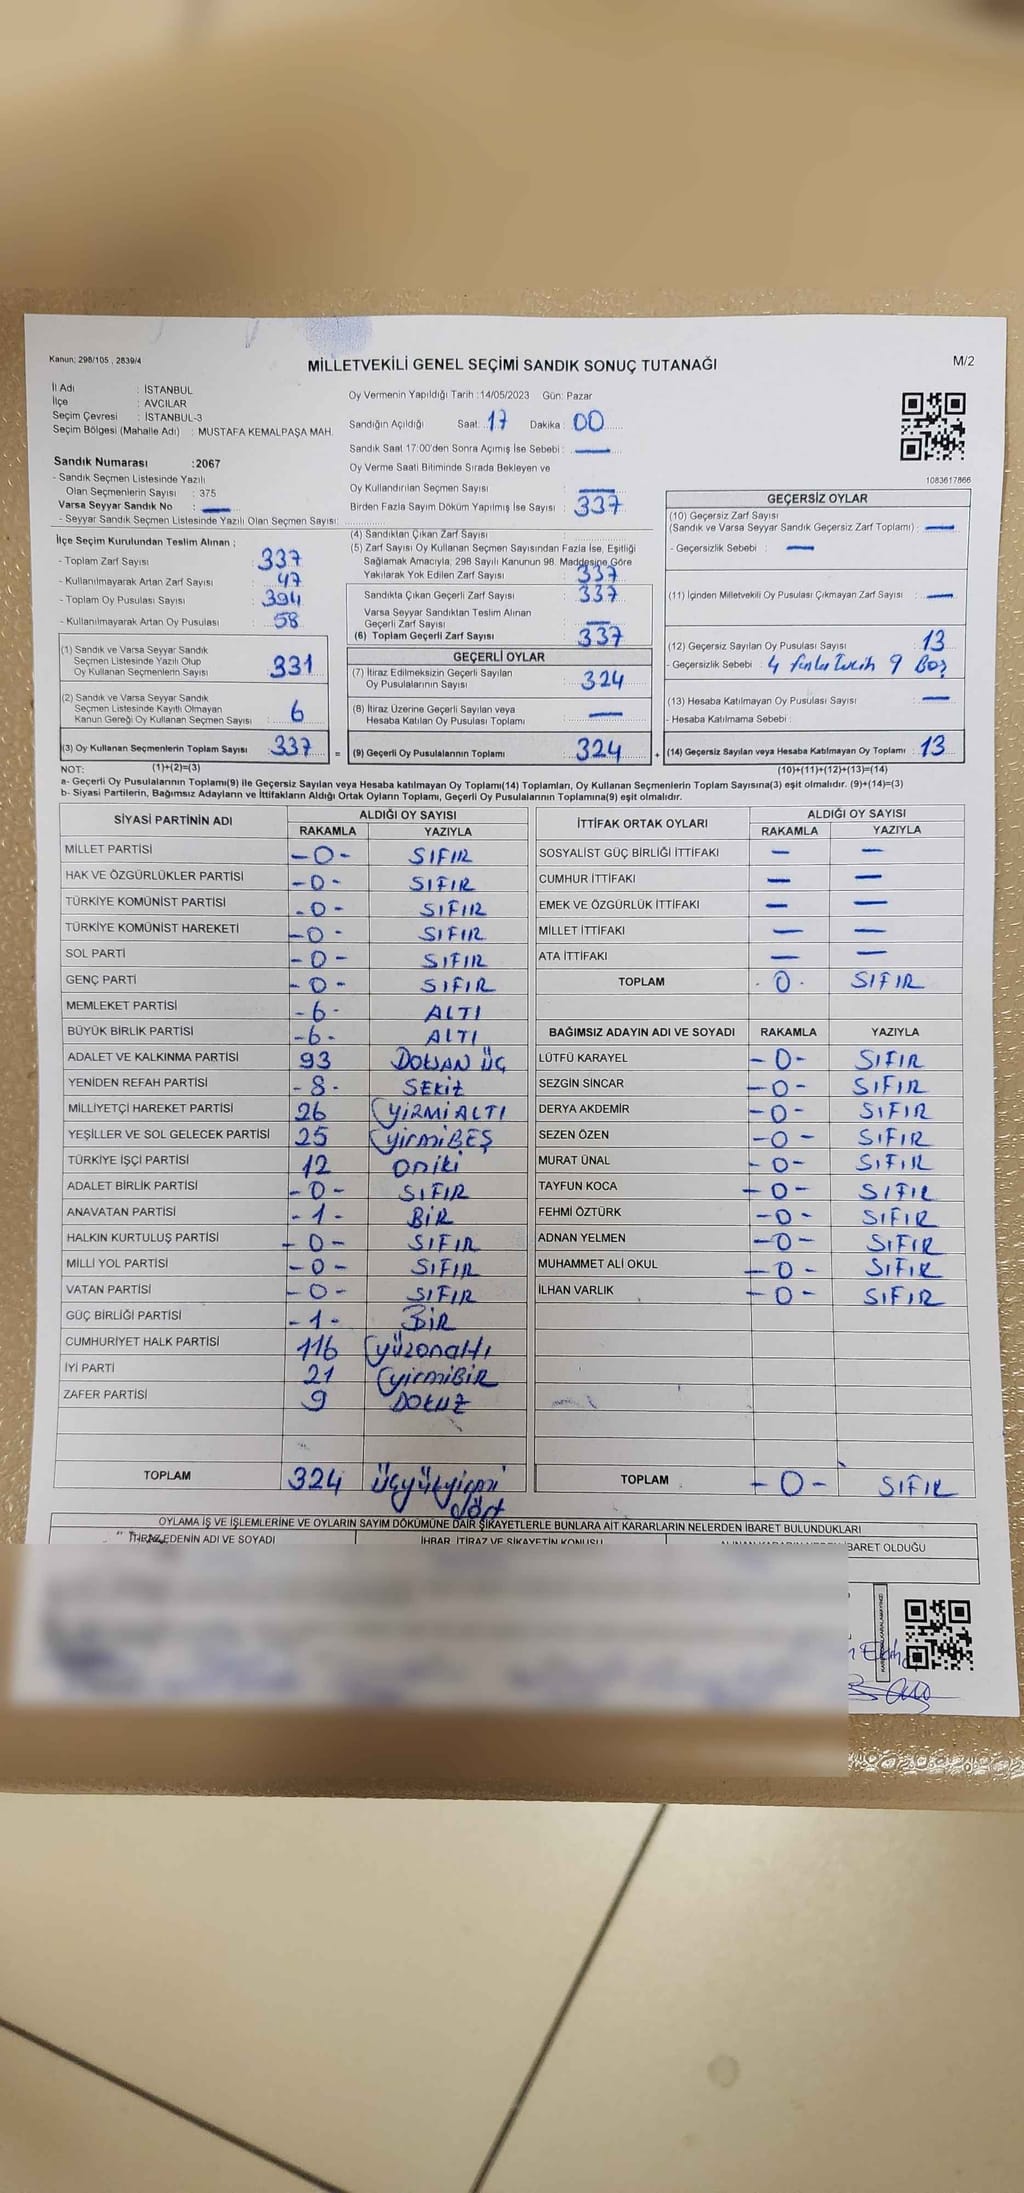 Kanun: 298/105 , 2839/4
MİLLETVEKİLİ GENEL SEÇİMİ SANDIK SONUÇ TUTANAĞI
M/2
İl Adı : İSTANBUL
İlçe : AVCILAR
Seçim Çevresi : İSTANBUL-3
Seçim Bölgesi (Mahalle Adı) : MUSTAFA KEMALPAŞA MAH.
Sandık Numarası :2067
- Sandık Seçmen Listesinde Yazılı
Olan Seçmenlerin Sayısı : 375
Varsa Seyyar Sandık No : —
- Seyyar Sandık Seçmen Listesinde Yazılı Olan Seçmen Sayısı:
Oy Vermenin Yapıldığı Tarih :14/05/2023 Gün: Pazar
Sandığın Açıldığı Saat: 17 Dakika : 00
Sandık Saat 17:00'den Sonra Açımış İse Sebebi : —
Oy Verme Saati Bitiminde Sırada Bekleyen ve
Oy Kullandırılan Seçmen Sayısı : —
Birden Fazla Sayım Döküm Yapılmış İse Sayısı : 337
1083617866
İlçe Seçim Kurulundan Teslim Alınan ;
- Toplam Zarf Sayısı : 337
- Kullanılmayarak Artan Zarf Sayısı : 47
- Toplam Oy Pusulası Sayısı : 394
- Kullanılmayarak Artan Oy Pusulası : 58
(1) Sandık ve Varsa Seyyar Sandık
Seçmen Listesinde Yazılı Olup
Oy Kullanan Seçmenlerin Sayısı : 331
(2) Sandık ve Varsa Seyyar Sandık
Seçmen Listesinde Kayıtlı Olmayan
Kanun Gereği Oy Kullanan Seçmen Sayısı : 6
(3) Oy Kullanan Seçmenlerin Toplam Sayısı : 337
(4) Sandıktan Çıkan Zarf Sayısı :
(5) Zarf Sayısı Oy Kullanan Seçmen Sayısından Fazla İse, Eşitliği
Sağlamak Amacıyla; 298 Sayılı Kanunun 98. Maddesine Göre
Yakılarak Yok Edilen Zarf Sayısı : 337
Sandıkta Çıkan Geçerli Zarf Sayısı : 337
Varsa Seyyar Sandıktan Teslim Alınan
Geçerli Zarf Sayısı : —
(6) Toplam Geçerli Zarf Sayısı : 337
GEÇERLİ OYLAR
(7) İtiraz Edilmeksizin Geçerli Sayılan
Oy Pusulalarının Sayısı : 324
(8) İtiraz Üzerine Geçerli Sayılan veya
Hesaba Katılan Oy Pusulası Toplamı : —
= (9) Geçerli Oy Pusulalarının Toplamı : 324
GEÇERSİZ OYLAR
(10) Geçersiz Zarf Sayısı
(Sandık ve Varsa Seyyar Sandık Geçersiz Zarf Toplamı) : —
- Geçersizlik Sebebi : —
(11) İçinden Milletvekili Oy Pusulası Çıkmayan Zarf Sayısı : —
(12) Geçersiz Sayılan Oy Pusulası Sayısı : 13
- Geçersizlik Sebebi : 4 fazla tercih 9 Boş
(13) Hesaba Katılmayan Oy Pusulası Sayısı : —
- Hesaba Katılmama Sebebi :
+ (14) Geçersiz Sayılan veya Hesaba Katılmayan Oy Toplamı : 13
NOT: (1)+(2)=(3) (10)+(11)+(12)+(13)=(14)
a- Geçerli Oy Pusulalarının Toplamı(9) ile Geçersiz Sayılan veya Hesaba katılmayan Oy Toplamı(14) Toplamları, Oy Kullanan Seçmenlerin Toplam Sayısına(3) eşit olmalıdır. (9)+(14)=(3)
b- Siyasi Partilerin, Bağımsız Adayların ve İttifakların Aldığı Ortak Oyların Toplamı, Geçerli Oy Pusulalarının Toplamına(9) eşit olmalıdır.
SİYASİ PARTİNİN ADI ALDIĞI OY SAYISI
RAKAMLA YAZIYLA
MİLLET PARTİSİ -0- SIFIR
HAK VE ÖZGÜRLÜKLER PARTİSİ -0- SIFIR
TÜRKİYE KOMÜNİST PARTİSİ -0- SIFIR
TÜRKİYE KOMÜNİST HAREKETİ -0- SIFIR
SOL PARTİ -0- SIFIR
GENÇ PARTİ -0- SIFIR
MEMLEKET PARTİSİ -6- ALTI
BÜYÜK BİRLİK PARTİSİ -6- ALTI
ADALET VE KALKINMA PARTİSİ 93 DOKSAN ÜÇ
YENİDEN REFAH PARTİSİ -8- SEKİZ
MİLLİYETÇİ HAREKET PARTİSİ 26 YİRMİALTI
YEŞİLLER VE SOL GELECEK PARTİSİ 25 yirmiBEŞ
TÜRKİYE İŞÇİ PARTİSİ 12 oniki
ADALET BİRLİK PARTİSİ -0- SIFIR
ANAVATAN PARTİSİ -1- BİR
HALKIN KURTULUŞ PARTİSİ -0- SIFIR
MİLLİ YOL PARTİSİ -0- SIFIR
VATAN PARTİSİ -0- SIFIR
GÜÇ BİRLİĞİ PARTİSİ -1- BİR
CUMHURİYET HALK PARTİSİ 116 yüzonaltı
İYİ PARTİ 21 yirmiBİR
ZAFER PARTİSİ 9 DOKUZ
TOPLAM 324 üçyüzyirmi dört
İTTİFAK ORTAK OYLARI ALDIĞI OY SAYISI
RAKAMLA YAZIYLA
SOSYALİST GÜÇ BİRLİĞİ İTTİFAKI — —
CUMHUR İTTİFAKI — —
EMEK VE ÖZGÜRLÜK İTTİFAKI — —
MİLLET İTTİFAKI — —
ATA İTTİFAKI — —
TOPLAM 0 SIFIR
BAĞIMSIZ ADAYIN ADI VE SOYADI RAKAMLA YAZIYLA
LÜTFÜ KARAYEL -0- SIFIR
SEZGİN SİNCAR -0- SIFIR
DERYA AKDEMİR -0- SIFIR
SEZEN ÖZEN -0- SIFIR
MURAT ÜNAL -0- SIFIR
TAYFUN KOCA -0- SIFIR
FEHMİ ÖZTÜRK -0- SIFIR
ADNAN YELMEN -0- SIFIR
MUHAMMET ALİ OKUL -0- SIFIR
İLHAN VARLIK -0- SIFIR
TOPLAM -0- SIFIR
OYLAMA İŞ VE İŞLEMLERİNE VE OYLARIN SAYIM DÖKÜMÜNE DAİR ŞİKAYETLERLE BUNLARA AİT KARARLARIN NELERDEN İBARET BULUNDUKLARI
İTİRAZ EDENİN ADI VE SOYADI İHBAR, İTİRAZ VE ŞİKAYETİN KONUSU İBARET OLDUĞU